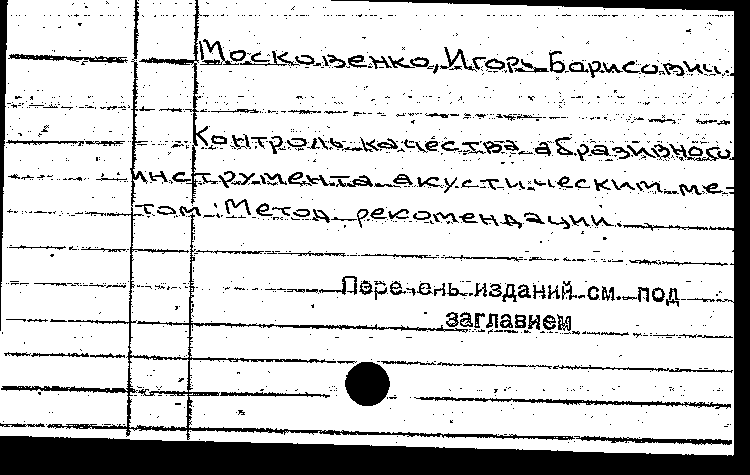 Московенко, Игорь Борисович.
Контроль качества абразивного
инструмента акустическим ме-
том: Метод. рекомендации.
Перечень изданий см. под
заглавием